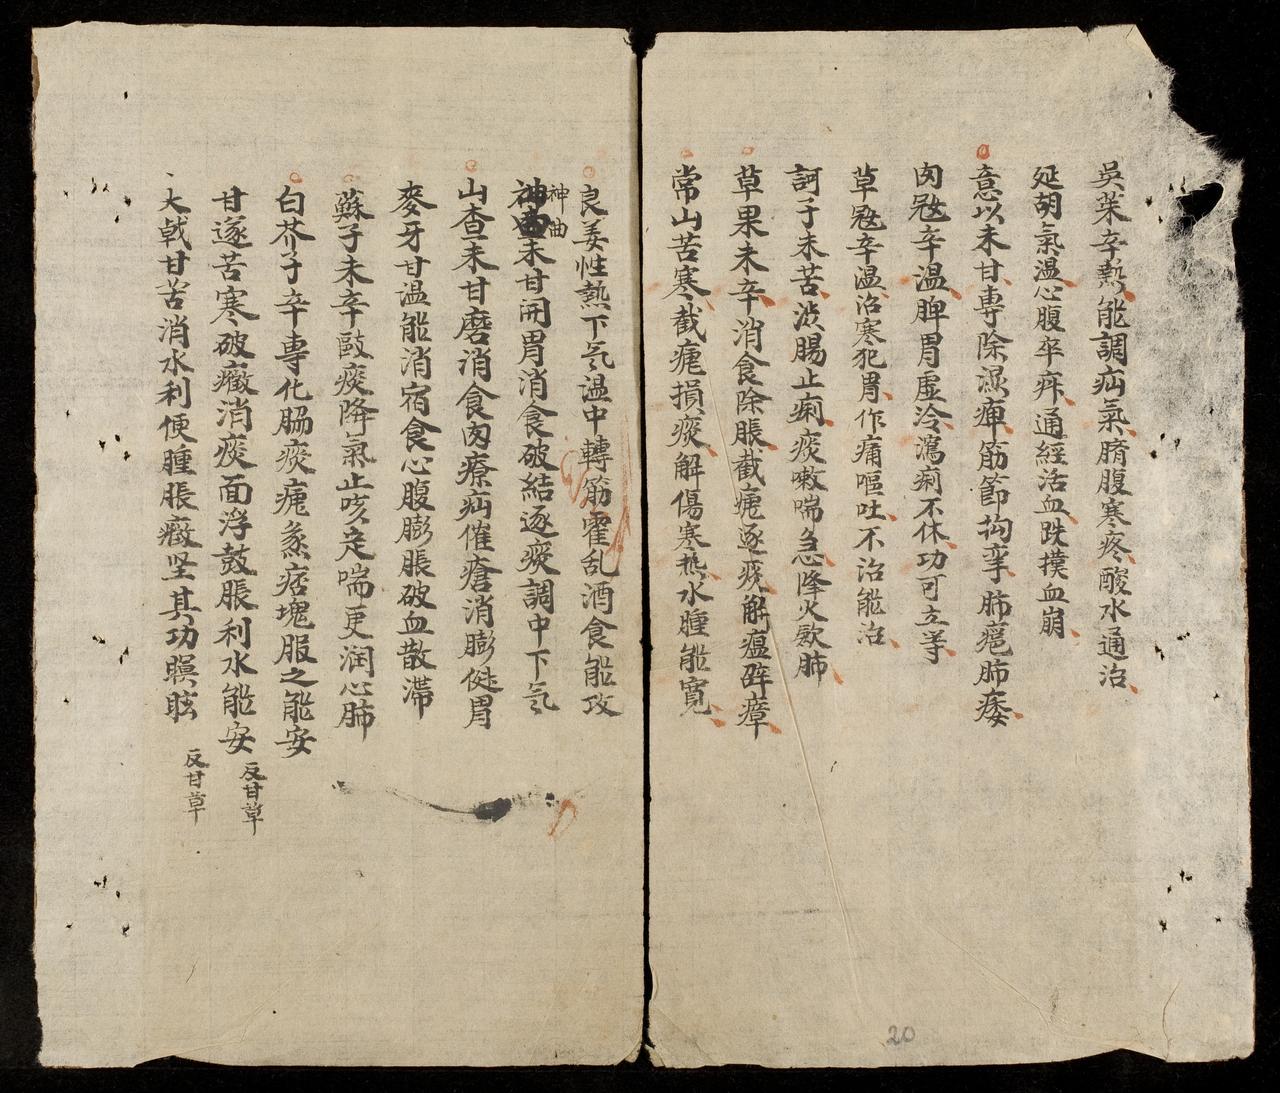 吳茱辛熱能調疝氣臍腹寒疼酸水通治
延胡氣溫心腹卒疼通經活血跌撲血崩
意以未甘專除濕痺筋節拘挛肺癰肺痿
肉蔻辛温脾胃虛冷瀉痢不休功可立等
草蔻辛温治寒犯胃作痛嘔吐不治能治
訶子未苦澁腸止痢痰嗽喘急降火歛肺
草果未辛消食除脹截瘧逐痰解瘟辟瘴
常山苦寒截瘧損痰解傷寒热水腫能寬
良姜性熱下气温中轉筋霍乱酒食能攻
神曲
神曲未甘開胃消食破結逐痰調中下气
山查未甘磨消食肉療疝催瘡消膨健胃
麥牙甘温能消宿食心腹膨脹破血散滞
蘇子未辛敺痰降氣止咳定喘更润心肺
白芥子辛專化脇痰瘧蒸痞塊服之能安
甘遂苦寒破癥消痰面浮鼓脹利水能安 反甘草
大戟甘苦消水利便腫脹癥坚其功瞑眩 反甘草
20